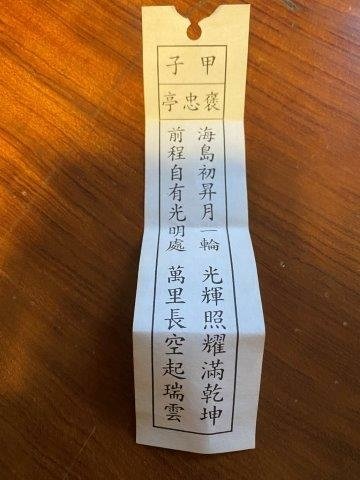 甲子
褒忠亭
海島初昇月一輪 光輝照耀滿乾坤
前程自有光明處 萬里長空起瑞雲